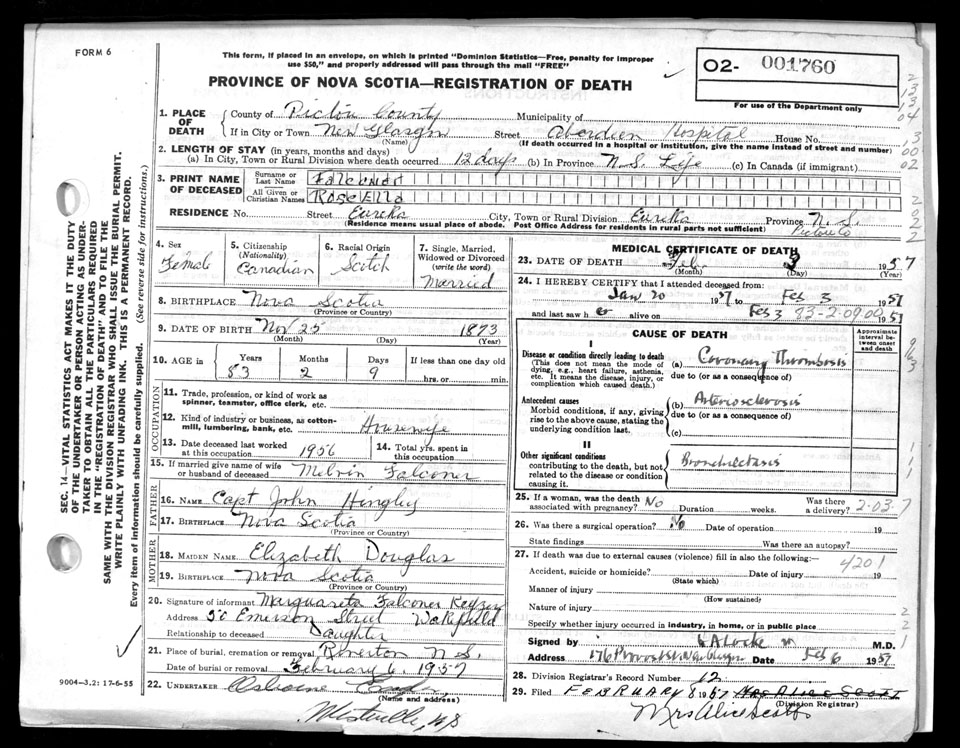 FORM 6
This form, if placed in an envelope, on which is printed "Dominion Statistics—Free, penalty for improper
use $50," and properly addressed will pass through the mail "FREE"
PROVINCE OF NOVA SCOTIA—REGISTRATION OF DEATH
O2- 001760
For use of the Department only
1. PLACE OF DEATH
County of Pictou County Municipality of
If in City or Town New Glasgow Street Aberdeen Hospital House No.
(Name) (If death occurred in a hospital or institution, give the name instead of street and number)
2. LENGTH OF STAY (in years, months and days)
(a) In City, Town or Rural Division where death occurred 12 days (b) In Province N.S. Life (c) In Canada (if immigrant)
3. PRINT NAME OF DECEASED
Surname or Last Name Falconer
All Given or Christian Names Rosella
RESIDENCE No. Street Eureka City, Town or Rural Division Eureka Province N.S.
Pictou Co
(Residence means usual place of abode. Post Office Address for residents in rural parts not sufficient)
4. Sex Female
5. Citizenship (Nationality) Canadian
6. Racial Origin Scotch
7. Single, Married, Widowed or Divorced (write the word) Married
8. BIRTHPLACE Nova Scotia
(Province or Country)
9. DATE OF BIRTH Nov 25 1873
(Month) (Day) (Year)
10. AGE in Years Months Days If less than one day old
83 2 9 hrs. or min.
OCCUPATION
11. Trade, profession, or kind of work as spinner, teamster, office clerk, etc.
12. Kind of industry or business, as cotton-mill, lumbering, bank, etc. Housewife
13. Date deceased last worked at this occupation 1956
14. Total yrs. spent in this occupation
15. If married give name of wife or husband of deceased Melvin Falconer
FATHER
16. NAME Capt John Hingley
17. BIRTHPLACE Nova Scotia
(Province or Country)
MOTHER
18. MAIDEN NAME. Elizabeth Douglas
19. BIRTHPLACE Nova Scotia
(Province or Country)
20. Signature of informant Marguareta Falconer Keyzer
Address 50 Emerson Street Wakefield
Relationship to deceased Daughter
21. Place of burial, cremation or removal Riverton N.S.
Date of burial or removal February 6, 1957
22. UNDERTAKER Osborne
(Name and address)
Westville, N S
9004-3.2: 17-6-55
MEDICAL CERTIFICATE OF DEATH
23. DATE OF DEATH Feb. 3 1957
(Month) (Day) (Year)
24. I HEREBY CERTIFY that I attended deceased from:
Jan 20 1957 to Feb 3 1957
and last saw her alive on Feb 3 83-2-0900 1957
CAUSE OF DEATH
Approximate interval between onset and death
I
Disease or condition directly leading to death
(This does not mean the mode of dying, e.g., heart failure, asthenia, etc. It means the disease, injury, or complication which caused death.)
(a) Coronary Thrombosis
due to (or as a consequence of)
Antecedent causes
Morbid conditions, if any, giving rise to the above cause, stating the underlying condition last.
(b) Arteriosclerosis
due to (or as a consequence of)
(c)
II
Other significant conditions
contributing to the death, but not related to the disease or condition causing it.
Bronchiectasis
25. If a woman, was the death associated with pregnancy? No Duration weeks. Was there a delivery? 2-03-7
26. Was there a surgical operation? No Date of operation 19
State findings Was there an autopsy?
27. If death was due to external causes (violence) fill in also the following:—
4201
Accident, suicide or homicide? Date of injury 19
(State which)
Manner of injury
(How sustained)
Nature of injury
Specify whether injury occurred in industry, in home, or in public place
Signed by M.D.
Address 176 Date Feb 6 1957
28. Division Registrar's Record Number 12
29. Filed FEBRUARY 8 1957 Mrs Alice Scott
(Division Registrar)
Mrs Alice Scott
SEC. 14—VITAL STATISTICS ACT MAKES IT THE DUTY
OF THE UNDERTAKER OR PERSON ACTING AS UNDER-
TAKER TO OBTAIN ALL THE PARTICULARS REQUIRED
IN THE "REGISTRATION OF DEATH" AND TO FILE THE
SAME WITH THE DIVISION REGISTRAR WHO SHALL ISSUE THE BURIAL PERMIT.
WRITE PLAINLY WITH UNFADING INK. THIS IS A PERMANENT RECORD.
Every item of information should be carefully supplied. (See reverse side for instructions.)